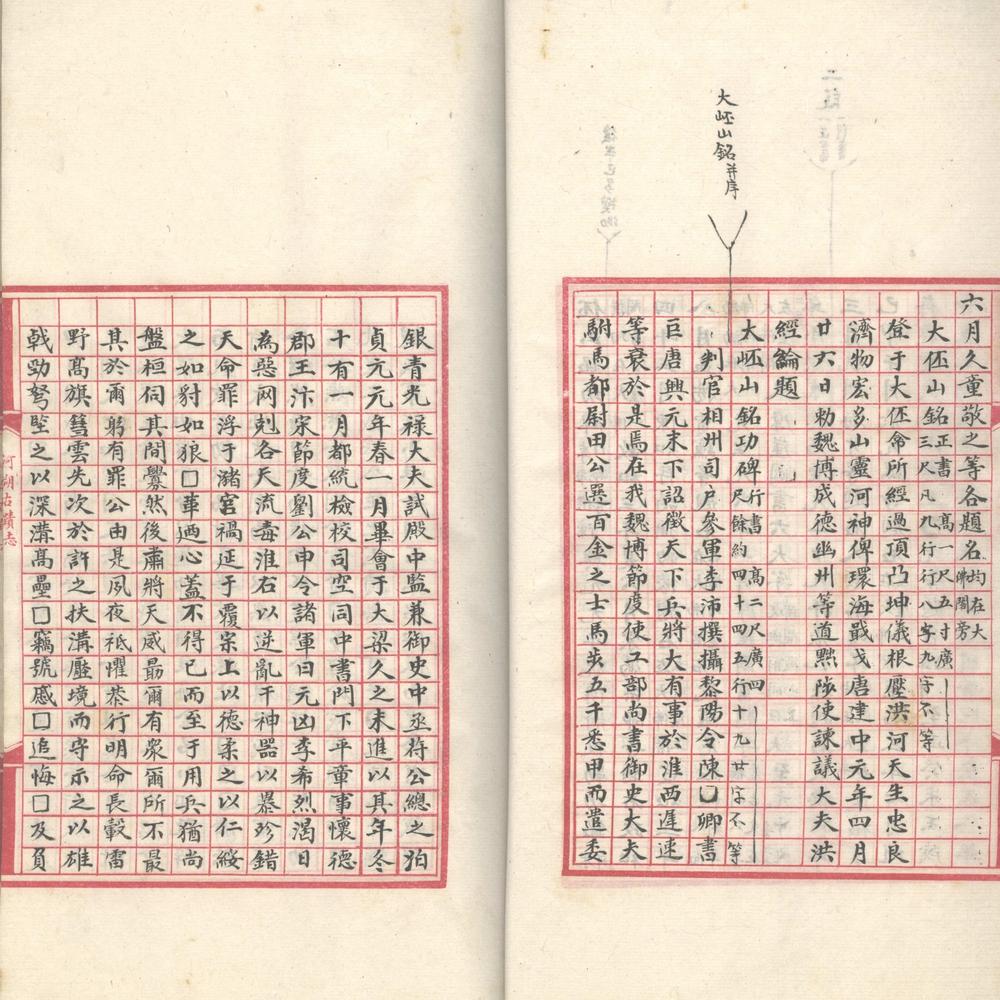 大岯山銘并序
六月久童敬之等各題名均在大佛閣旁
大伾山銘正書高一尺五寸廣三尺凡九行行八字九字不等
登于大伾命所經過頂凸坤儀根壓洪河天生忠良
濟物宏多山靈河神俾環海戢戈唐建中元年四月
廿六日勑魏博成德幽州等道黜陟使諫議大夫洪
經綸題
大岯山銘功碑行書高二尺廣四尺餘約四十四五行十九廿字不等
判官相州司戶參軍李沛撰攝黎陽令陳□卿書
巨唐興元末下詔徵天下兵將大有事於淮西遲速
等衰於是焉在我魏博節度使工部尚書御史大夫
駙馬都尉田公選百金之士馬步五千悉甲而遣委
銀青光祿大夫試殿中監兼御史中丞符公總之洎
貞元元年春一月畢會于大梁久之未進以其年冬
十有一月都統檢校司空同中書門下平章事懷德
郡王汴宋節度劉公申令諸軍曰元凶李希烈濁日
為惡网剋各天流毒淮右以逆亂干神器以暴殄錯
天命罪浮于瀦宮禍延于覆宗上以德柔之以仁綏
之如豺如狼□革迺心蓋不得已而至于用兵猶尚
盤桓伺其間釁然後肅將天威最爾有衆爾所不最
其於爾躬有罪公由是夙夜祗懼恭行明命長轂雷
野高旗彗雲先次於許之扶溝壓境而守示之以雄
戟勁弩堅之以深溝高壘□竊號慼□追悔□及負
河朔古蹟志